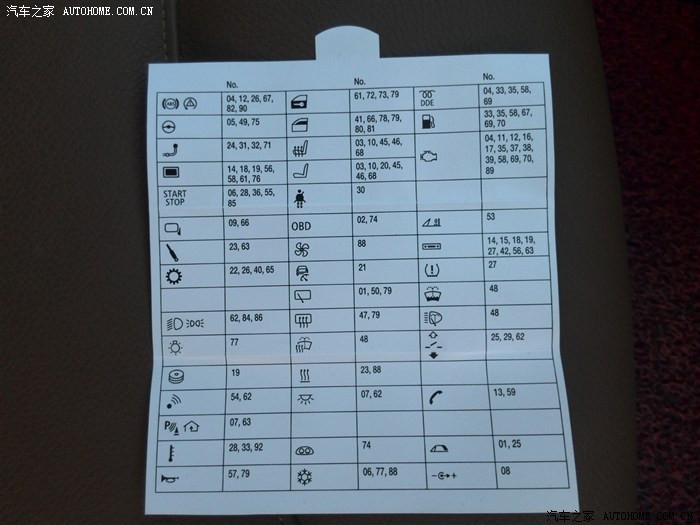 汽车之家 AUTOHOME.COM.CN
No. No. No.
04, 12, 26, 67,
82, 90
61, 72, 73, 79
DDE
04, 33, 35, 58,
69
05, 49, 75
41, 66, 78, 79,
80, 81
33, 35, 58, 67,
69, 70
24, 31, 32, 71
03, 10, 45, 46,
68
04, 11, 12, 16,
17, 35, 37, 38,
39, 58, 69, 70,
89
14, 18, 19, 56,
58, 61, 76
03, 10, 20, 45,
46, 68
START
STOP
06, 28, 36, 55,
85
30
09, 66
OBD
02, 74
53
23, 63
88
14, 15, 18, 19,
27, 42, 56, 63
22, 26, 40, 65
21
27
01, 50, 79
48
62, 84, 86
47, 79
48
77
48
25, 29, 62
19
23, 88
54, 62
07, 62
13, 59
07, 63
28, 33, 92
74
01, 25
57, 79
06, 77, 88
08
汽车之家 AUTOHOME.COM.CN